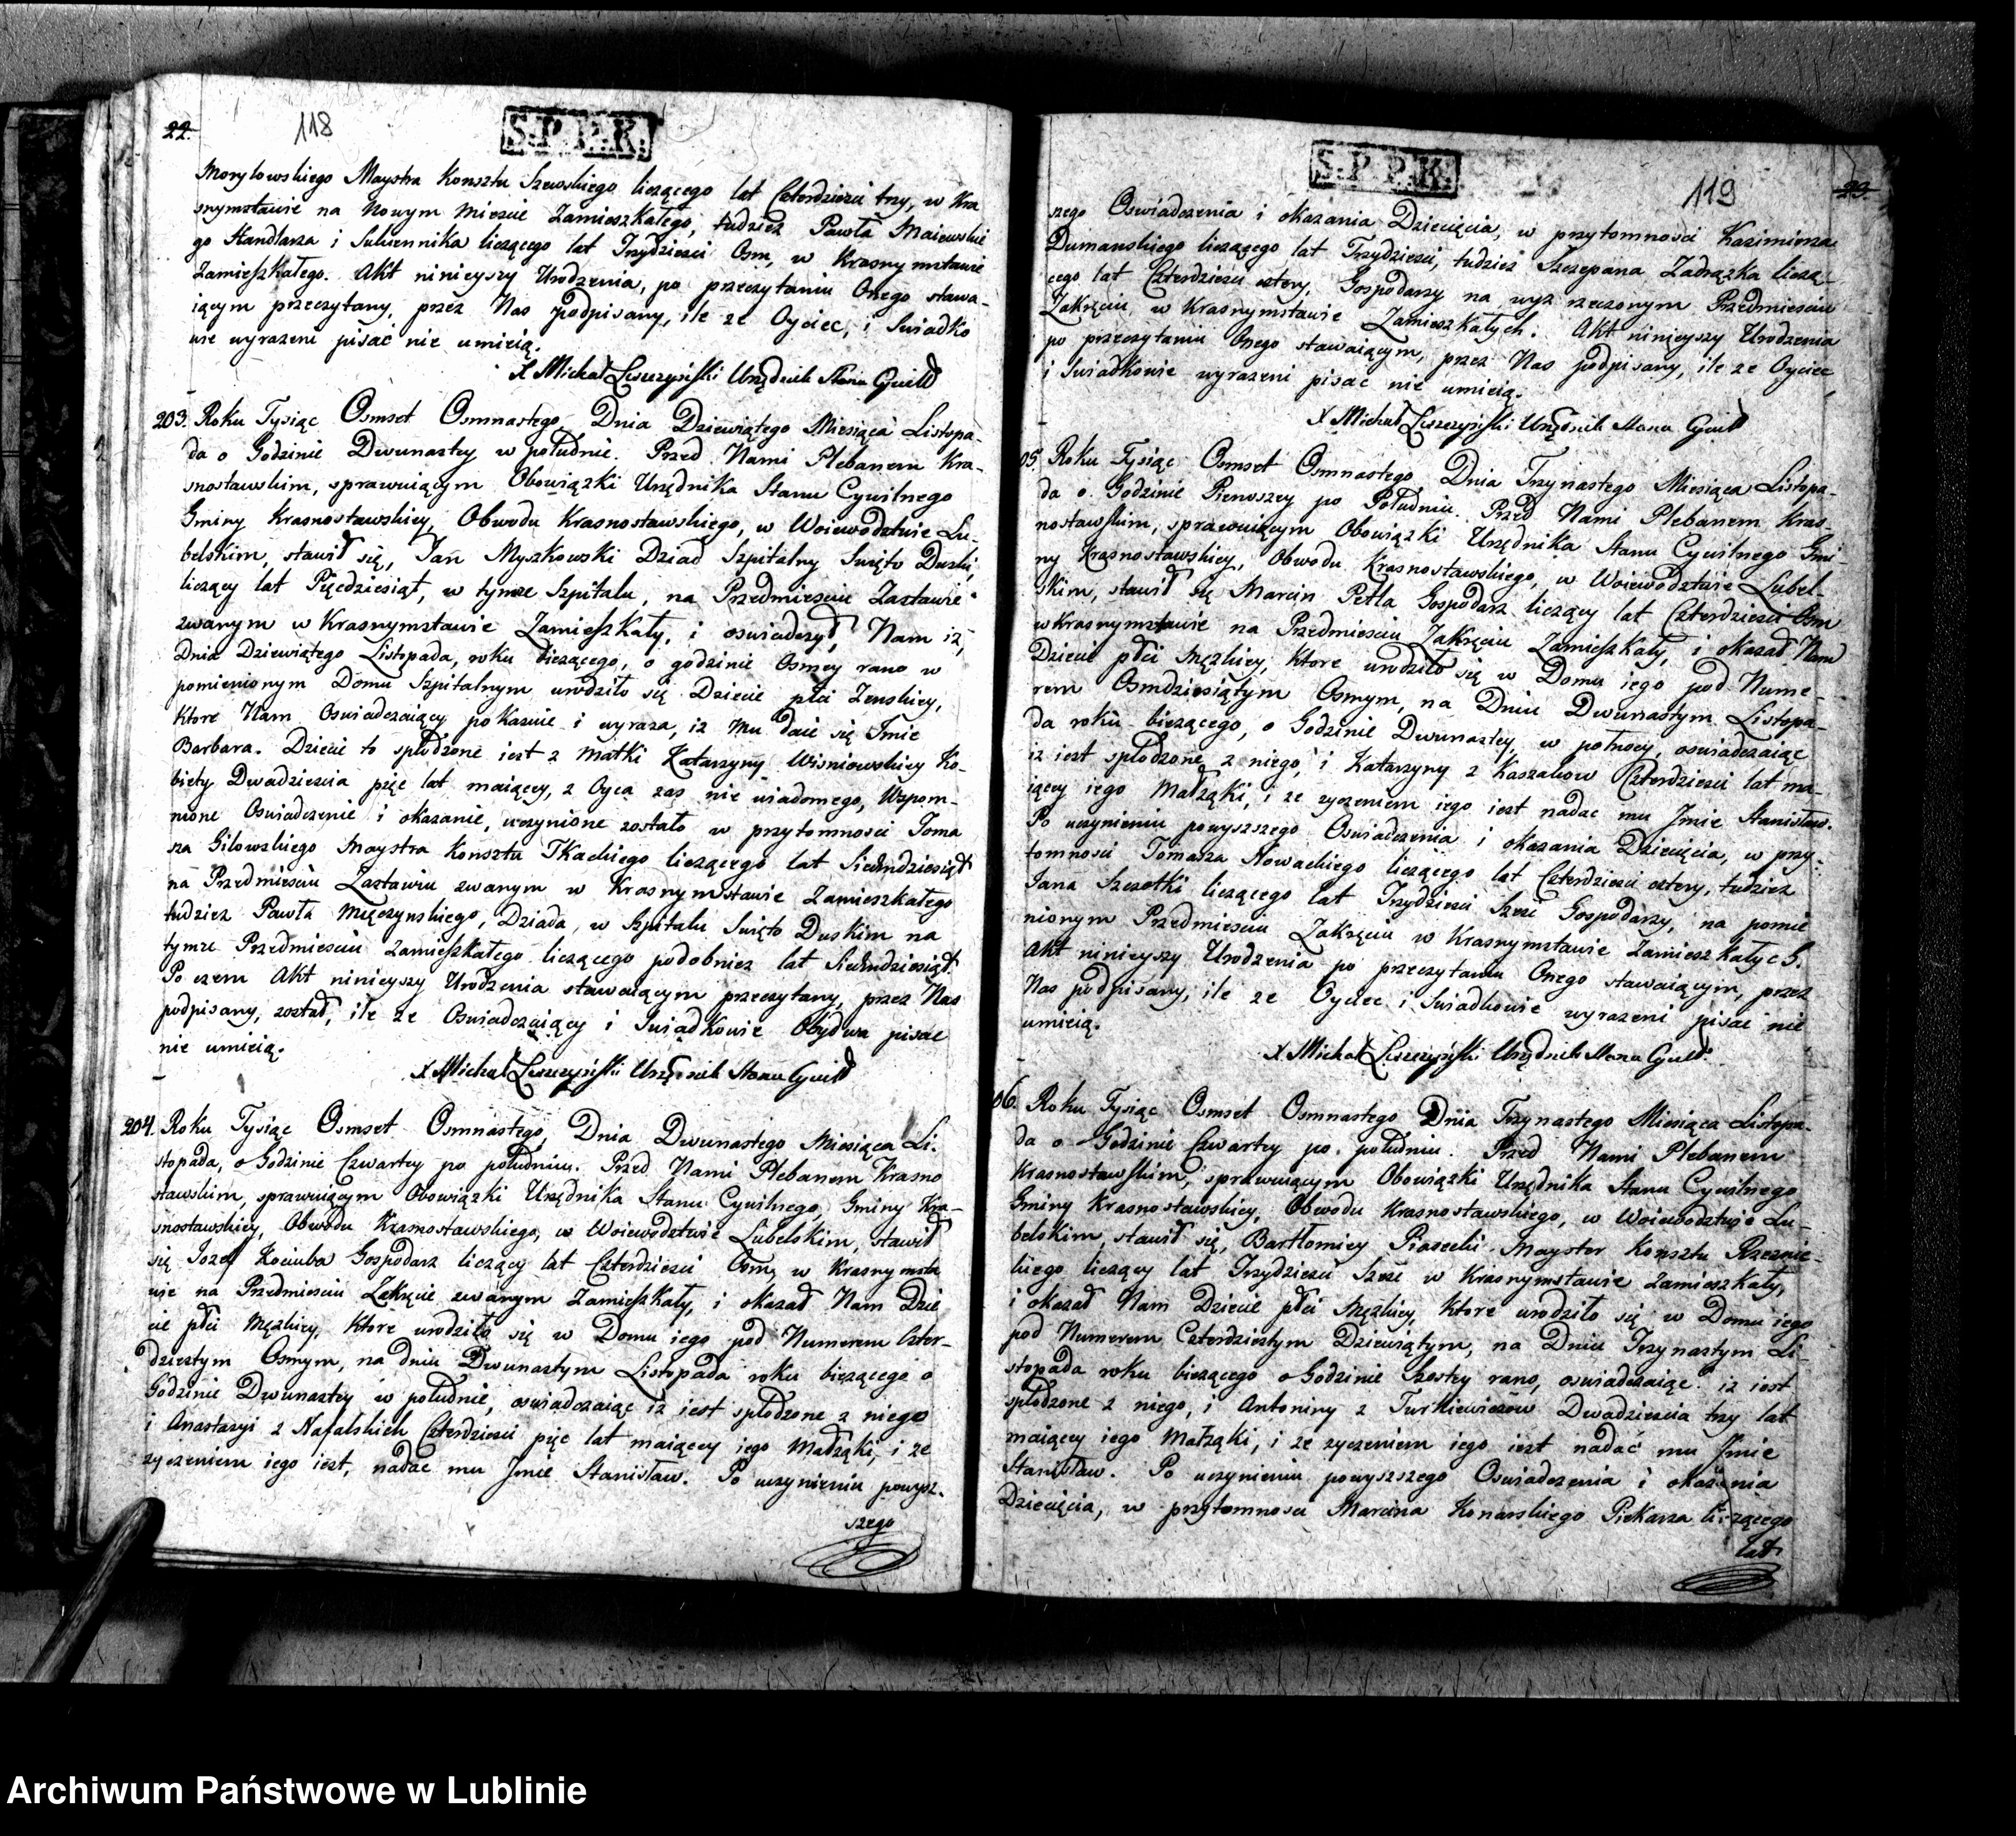 22.
118
S.P.P.K.
Morylowskiego Maystra Konsztu Szewskiego liczącego lat Czterdzieści trzy, w Kra
snymstawie na Nowym Mieście Zamieszkałego, tudzież Pawła Maiewskie
go Handlarza i Sukiennika liczącego lat Trzydzieści Osm, w Krasnymstawie
Zamieszkałego. Akt ninieyszy Urodzenia, po przeczytaniu Onego stawa-
iącym przeczytany, przez Nas podpisany, ile ze Oyciec, i Swiadko
wie wyrazeni pisać nie umieią.
X Michał Leszczyński Urzędnik Stanu Cywil
203. Roku Tysiąc Osmset Osmnastego, Dnia Dziewiątego Miesiąca Listopa-
da o Godzinie Dwunastey w południe. Przed Nami Plebanem Kra-
snostawskim, sprawuiącym Obowiązki Urzędnika Stanu Cywilnego
Gminy Krasnostawskiey, Obwodu Krasnostawskiego, w Woiewodztwie Lu-
belskim, stawił się, Jan Myszkowski Dziad Szpitalny Swięto Duski,
liczący lat Pięćdziesiąt, w tymze Szpitalu, na Przedmiesciu Zastawie
zwanym w Krasnymstawie Zamieszkały, i oswiadczył Nam iz,
Dnia Dziewiątego Listopada, roku biezącego, o godzinie Osmey rano w
pomienionym Domu Szpitalnym urodziło się Dziecie płci Zenskiey,
Ktore Nam Oswiadczaiący pokazuie i wyraza, iz mu daie się Imie
Barbara. Dziecie to spłodzone iest z Matki Katarzyny Wisniowskiey Ko-
biety Dwadziescia pięć lat maiącey, z Oyca zas nie wiadomego, Wspom-
nione Oswiadczenie i okazanie, uczynione zostało w przytomnosci Toma
sza Gilowskiego Maystra Konsztu Tkackiego liczącego lat Siedmdziesiąt
na Przedmiesciu Zastawiu zwanym w Krasnymstawie Zamieszkałego
tudziez Pawła Męczynskiego, Dziada, w Szpitalu Swięto Duskim na
tymze Przedmiesciu Zamieszkałego liczącego podobniez lat Siedmdziesiąt.
Po czem Akt ninieyszy Urodzenia stawaiącym przeczytany, przez Nas
podpisany, został, ile ze Oswiadczaiący i Swiadkowie Obydwa pisać
nie umieią.
X Michał Leszczyński Urzędnik Stanu Cywil
204. Roku Tysiąc Osmset Osmnastego, Dnia Dwunastego Miesiąca Li-
stopada, o Godzinie Czwartey po południu. Przed Nami Plebanem Krasno
stawskim, sprawuiącym Obowiązki Urzędnika Stanu Cywilnego, Gminy Kra-
snostawskiey, Obwodu Krasnostawskiego, w Woiewodztwie Lubelskim, stawił
się Jozef Kociuba Gospodarz liczący lat Czterdzieści Osm, w Krasnymsta
wie na Przedmiesciu Zakręcie zwanym Zamieszkały, i okazał Nam Dzie
cie płci Męzkiey, Ktore urodziło się w Domu iego pod Numerem Czter-
dziestym Osmym, na dniu Dwunastym Listopada roku biezącego o
Godzinie Dwunastey w południe, oswiadczaiąc iz iest spłodzone z niego
i Anastazyi z Nafalskich Czterdzieści pięć lat maiącey iego Małząki, i ze
zyczeniem iego iest, nadać mu Jmie Stanisław. Po uczynieniu powysz-
szego
S.P.P.K.
119
23.
szego Oswiadczenia i okazania Dziecięcia, w przytomności Kazimierza
Dumanskiego liczącego lat Trzydzieści, tudzież Szczepana Zadrązka liczą-
cego lat Czterdzieści cztery, Gospodarzy na wyz rzeczonym Przedmiesciu
Zakręciu, w Krasnymstawie Zamieszkałych. Akt ninieyszy Urodzenia
po przeczytaniu Onego stawaiącym, przez Nas podpisany, ile ze Oyciec
i Swiadkowie wyrazeni pisac nie umieią.
X Michał Leszczyński Urzędnik Stanu Cywil
05. Roku Tysiąc Osmset Osmnastego, Dnia Trzynastego Miesiąca Listopa-
da o Godzinie Pierwszey po Południu. Przed Nami Plebanem Kras
nostawskim, sprawuiącym Obowiązki Urzędnika Stanu Cywilnego Gmi-
ny Krasnostawskiey, Obwodu Krasnostawskiego, w Woiewodztwie Lubel-
skim, stawił się Marcin Petla Gospodarz liczący lat Czterdzieści Osm
w Krasnymstawie na Przedmiesciu Zakręciu Zamieszkały, i okazał Nam
Dziecie płci Męzkiey, Ktore urodziło się w Domu iego pod Nume-
rem Osmdziesiątym Osmym, na Dniu Dwunastym Listopa-
da roku biezącego, o Godzinie Dwunastey, w połnocy, oswiadczaiąc
iz iest spłodzone z niego, i Katarzyny z Kaszakow Czterdzieści lat ma-
iącey iego Małząki, i ze zyczeniem iego iest nadac mu Jmie Stanisław.
Po uczynieniu powyszszego Oswiadczenia i okazania Dziecięcia, w przy-
tomnosci Tomasza Nowackiego liczącego lat Czterdzieści cztery, tudziez
Jana Szczotki liczącego lat Trzydzieści Szesć Gospodarzy, na pomie
nionym Przedmiesciu Zakręciu w Krasnymstawie Zamieszkałych.
Akt ninieyszy Urodzenia po przeczytaniu Onego stawaiącym, przez
Nas podpisany, ile ze Oyciec i Swiadkowie wyrazeni pisac nie
umieią.
X Michał Leszczyński Urzędnik Stanu Cywil.
06. Roku Tysiąc Osmset Osmnastego Dnia Trzynastego Miesiąca Listopa-
da o Godzinie Czwartey po południu. Przed Nami Plebanem
Krasnostawskim, sprawuiącym Obowiązki Urzędnika Stanu Cywilnego
Gminy Krasnostawskiey, Obwodu Krasnostawskiego, w Woiewodztwie Lu-
belskim, stawił się, Bartłomiey Piasecki Mayster Konsztu Rzeznic-
kiego liczący lat Trzydzieści Szesć w Krasnymstawie Zamieszkały,
i okazał Nam Dziecie płci Męzkiey, Ktore urodziło się w Domu iego
pod Numerem Czterdziestym Dziewiątym, na Dniu Trzynastym Li-
stopada roku biezącego o Godzinie Szostey rano, oswiadczaiąc iz iest
spłodzone z niego, i Antoniny z Turkiewiczow Dwadziescia trzy lat
maiącey iego Małząki, i ze zyczeniem iego iest nadać mu Jmie
Stanisław. Po uczynieniu powyszszego Oswiadczenia i okazania
Dziecięcia, w przytomnosci Marcina Konarskiego Piekarza liczącego
lat
Archiwum Państwowe w Lublinie